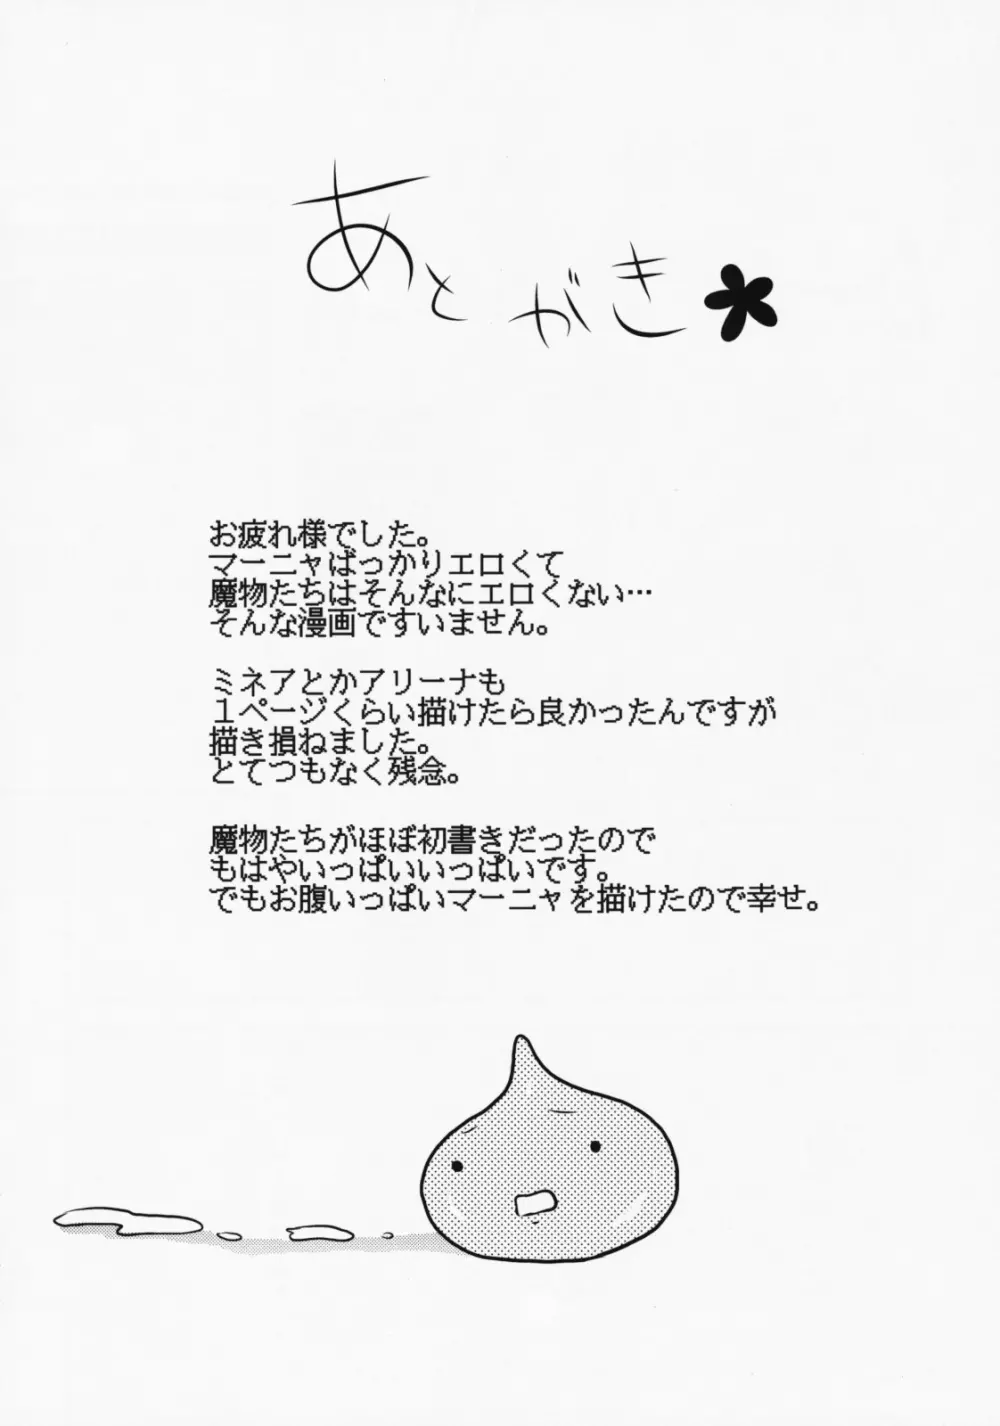 あとがき
お疲れ様でした。
マーニャばっかりエロくて
魔物たちはそんなにエロくない…
そんな漫画ですいません。
ミネアとかアリーナも
1ページくらい描けたら良かったんですが
描き損ねました。
とてつもなく残念。
魔物たちがほぼ初書きだったので
もはやいっぱいいっぱいです。
でもお腹いっぱいマーニャを描けたので幸せ。